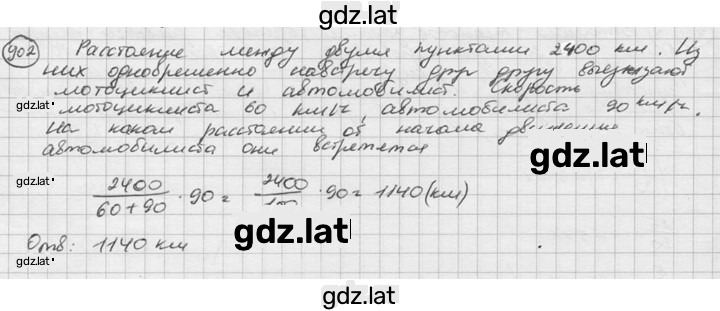 gdz.lat
902 Расстояние между двумя пунктами 2400 км. Из
них одновременно навстречу друг другу выезжают
мотоциклист и автомобилист. Скорость
gdz.lat
мотоциклиста 60 км/ч, автомобилиста 90 км/ч.
На каком расстоянии от начала движения
автомобилиста они встретятся
gdz.lat
gdz.lat
2400/60+90 · 90 = 2400/ · 90 = 1140 (км)
gdz.lat
Отв: 1140 км
gdz.lat
gdz.lat